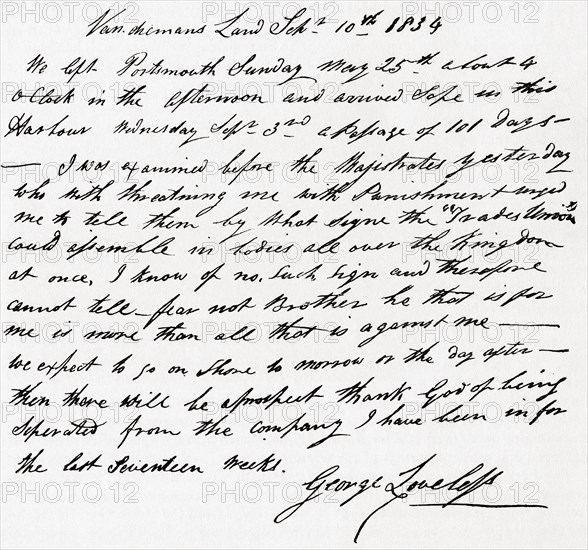 Van.diemans Land Sepr 10th 1834
We left Portsmouth Sunday May 25th about 4
oClock in the afternoon and arrived Safe in this
Harbour Wednesday Sepr 3rd a Passage of 101 Days-
— I was examined before the Majistrates yesterday
who with threatning me with Punishment urged
me to tell them by What Signe the "Trades Unions"
could assemble in bodies all over the Kingdom
at once, I know of no. Such Sign and therefore
cannot tell - fear not Brother he that is for
me is more than all that is against me ——
we expect to go on Shore to morrow or the day after —
then there will be a prospect thank God of being
Seperated from the company I have been in for
the last Seventeen Weeks.
George Loveless
PHOTO 12